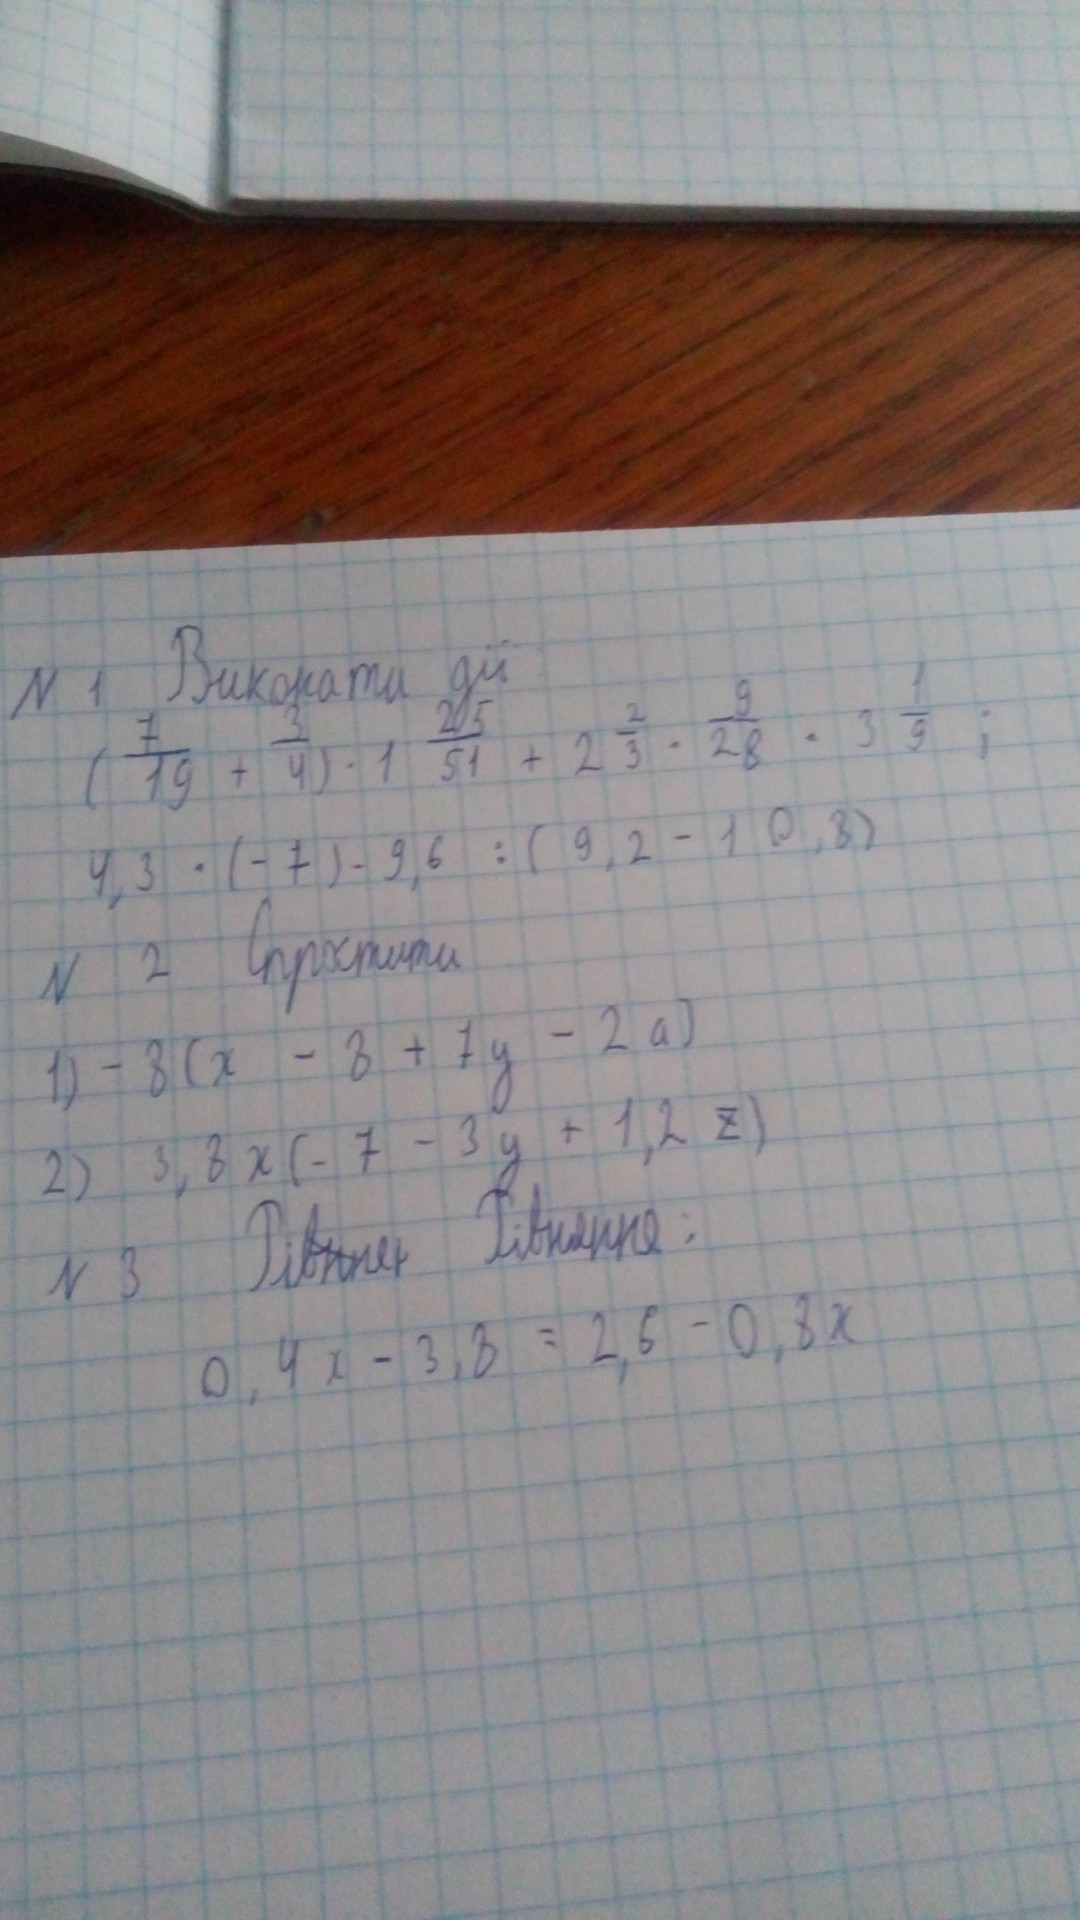 N 1 Виконати дії
(7/19 + 3/4) · 1 25/51 + 2 2/3 · 9/28 · 3 1/9 ;
4,3 · (-7) - 9,6 : (9,2 - 10,8)
N 2 Спростити
1) - 8 (x - 8 + 7y - 2a)
2) 3,8x (- 7 - 3y + 1,2 z)
N 3 Рівняння:
0,4x - 3,8 = 2,6 - 0,8x